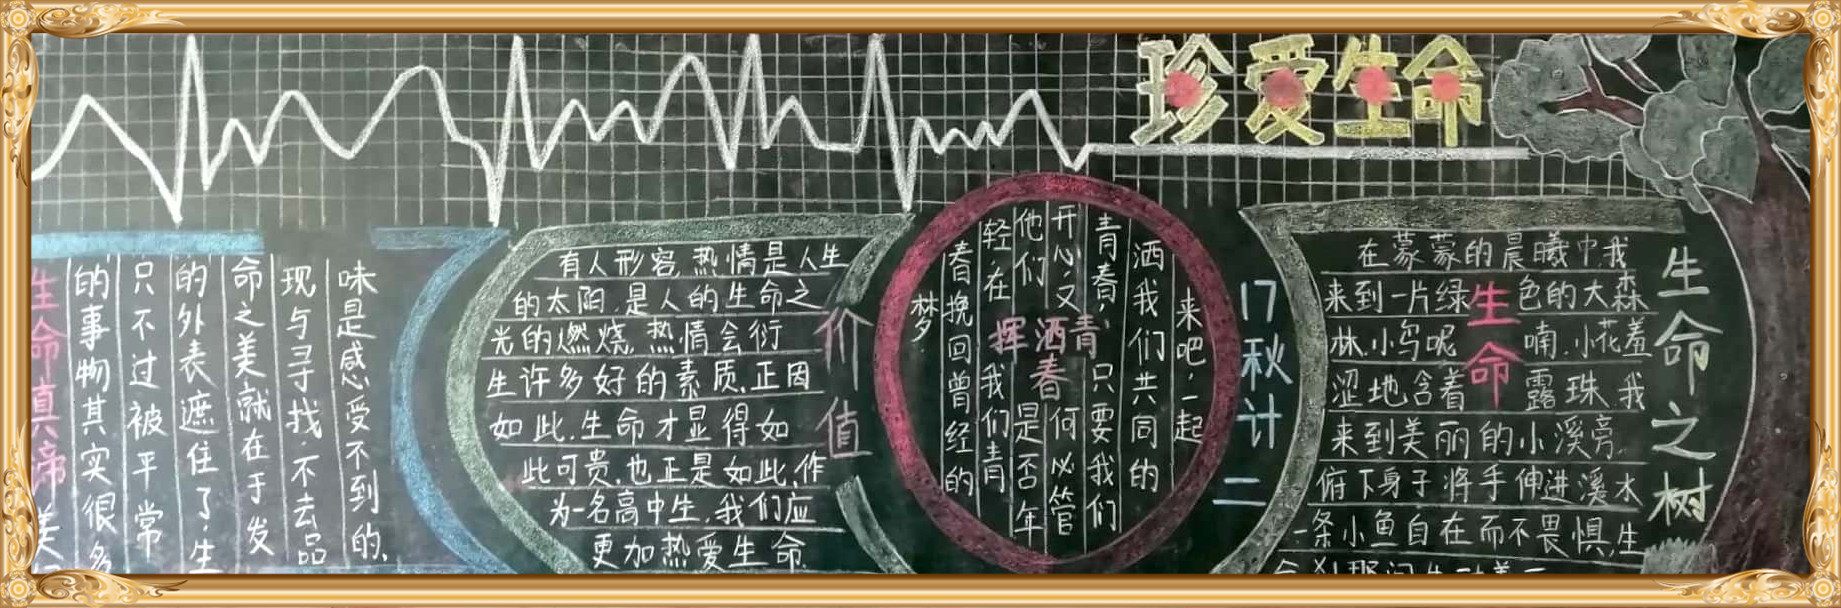 珍爱生命
生命真谛
美
的事物其实很多
只不过被平常
的外表遮住了.生
命之美就在于发
现与寻找.不去品
味是感受不到的.
价值
有人形容,热情是人生
的太阳.是人的生命之
光的燃烧.热情会衍
生许多好的素质.正因
如此.生命才显得如
此可贵.也正是如此,作
为一名高中生.我们应
更加热爱生命.
挥洒青春
来吧,一起
洒我们共同的
青春,只要我们
开心又何必管
他们是否年
轻在我们青
春挽回曾经的
梦.
17秋计二
生命之树
生命
在蒙蒙的晨曦中我
来到一片绿色的大森
林.小鸟呢喃.小花羞
涩地含着露珠.我
来到美丽的小溪旁.
俯下身子将手伸进溪水
一条小鱼自在而不畏惧,生